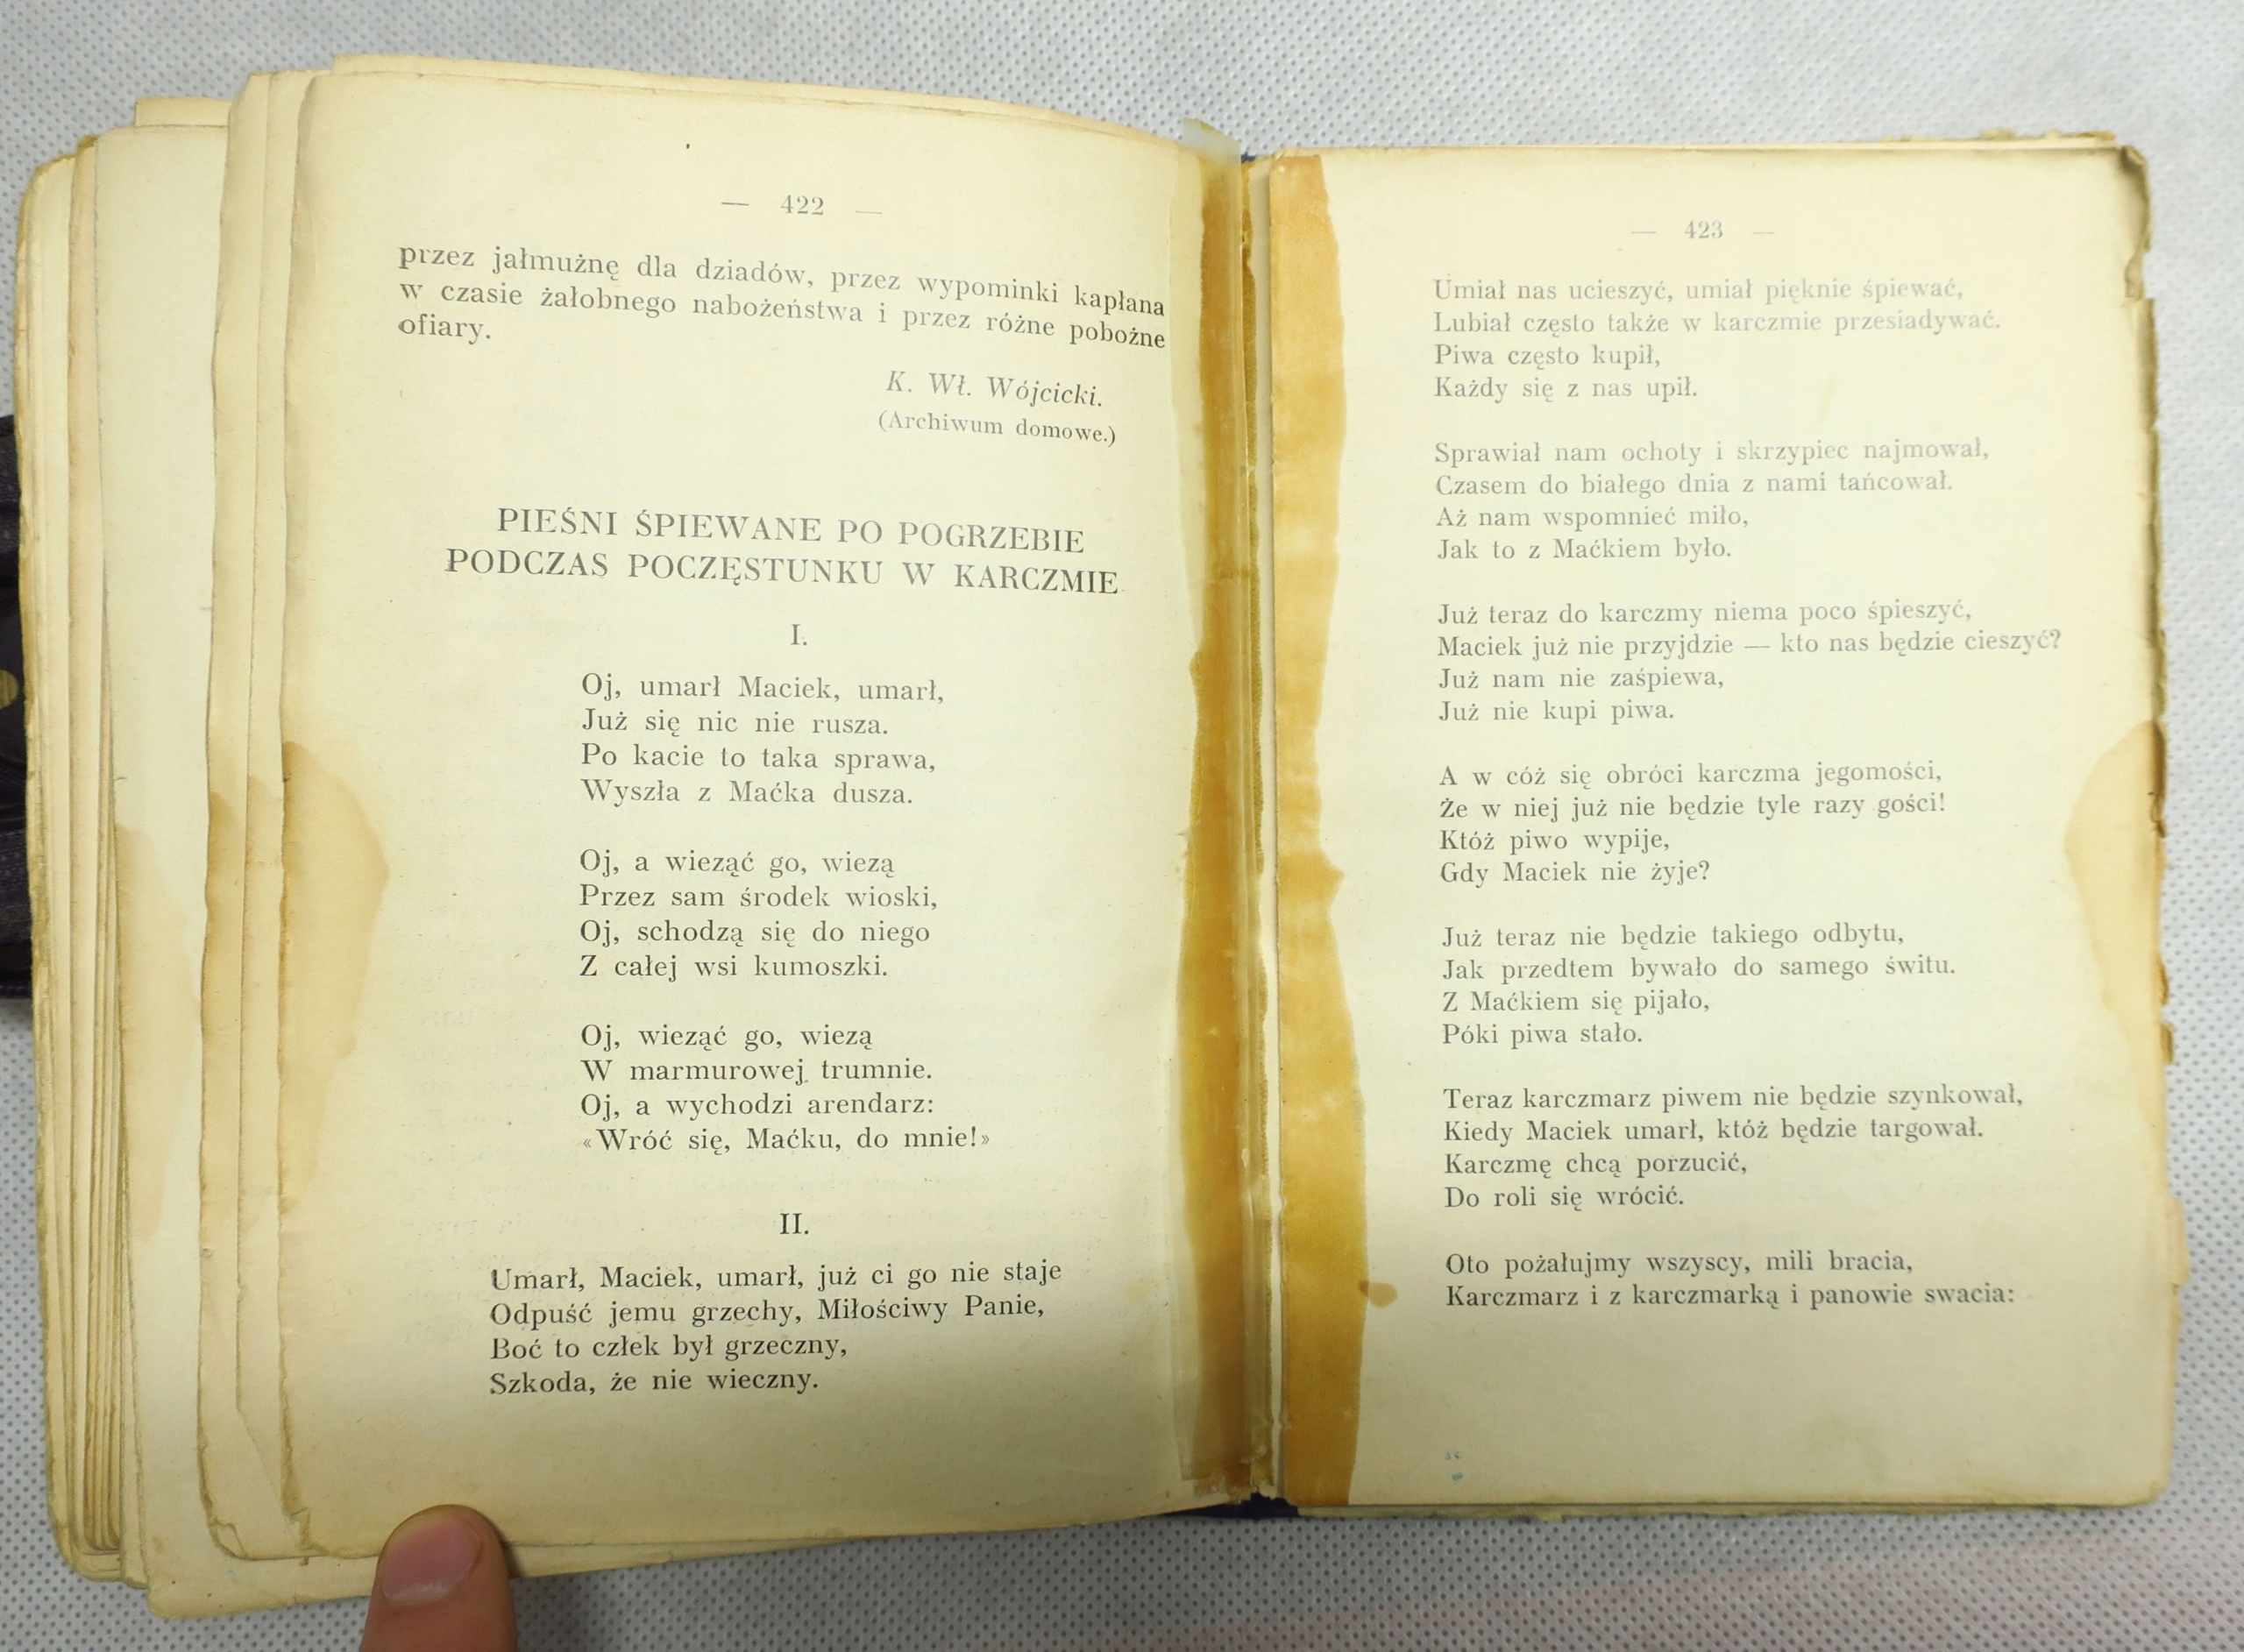 — 422 —
przez jałmużnę dla dziadów, przez wypominki kapłana
w czasie żałobnego nabożeństwa i przez różne pobożne
ofiary.
K. Wł. Wójcicki.
(Archiwum domowe.)
PIEŚNI ŚPIEWANE PO POGRZEBIE
PODCZAS POCZĘSTUNKU W KARCZMIE
I.
Oj, umarł Maciek, umarł,
Już się nic nie rusza.
Po kacie to taka sprawa,
Wyszła z Maćka dusza.
Oj, a wieząć go, wiezą
Przez sam środek wioski,
Oj, schodzą się do niego
Z całej wsi kumoszki.
Oj, wieząć go, wiezą
W marmurowej trumnie.
Oj, a wychodzi arendarz:
«Wróć się, Maćku, do mnie!»
II.
Umarł, Maciek, umarł, już ci go nie staje
Odpuść jemu grzechy, Miłościwy Panie,
Boć to człek był grzeczny,
Szkoda, że nie wieczny.
— 423 —
Umiał nas ucieszyć, umiał pięknie śpiewać,
Lubiał często także w karczmie przesiadywać.
Piwa często kupił,
Każdy się z nas upił.
Sprawiał nam ochoty i skrzypiec najmował,
Czasem do białego dnia z nami tańcował.
Aż nam wspomnieć miło,
Jak to z Maćkiem było.
Już teraz do karczmy niema poco śpieszyć,
Maciek już nie przyjdzie — kto nas będzie cieszyć?
Już nam nie zaśpiewa,
Już nie kupi piwa.
A w cóż się obróci karczma jegomości,
Że w niej już nie będzie tyle razy gości!
Któż piwo wypije,
Gdy Maciek nie żyje?
Już teraz nie będzie takiego odbytu,
Jak przedtem bywało do samego świtu.
Z Maćkiem się pijało,
Póki piwa stało.
Teraz karczmarz piwem nie będzie szynkował,
Kiedy Maciek umarł, któż będzie targował.
Karczmę chcą porzucić,
Do roli się wrócić.
Oto pożałujmy wszyscy, mili bracia,
Karczmarz i z karczmarką i panowie swacia: